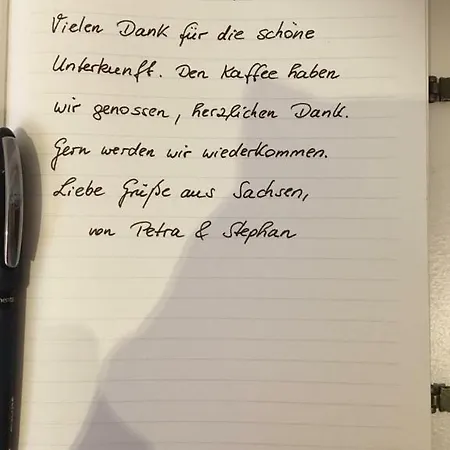 Vielen Dank für die schöne
Unterkunft. Den Kaffee haben
wir genossen, herzlichen Dank.
Gern werden wir wiederkommen.
Liebe Grüße aus Sachsen,
von Petra & Stephan